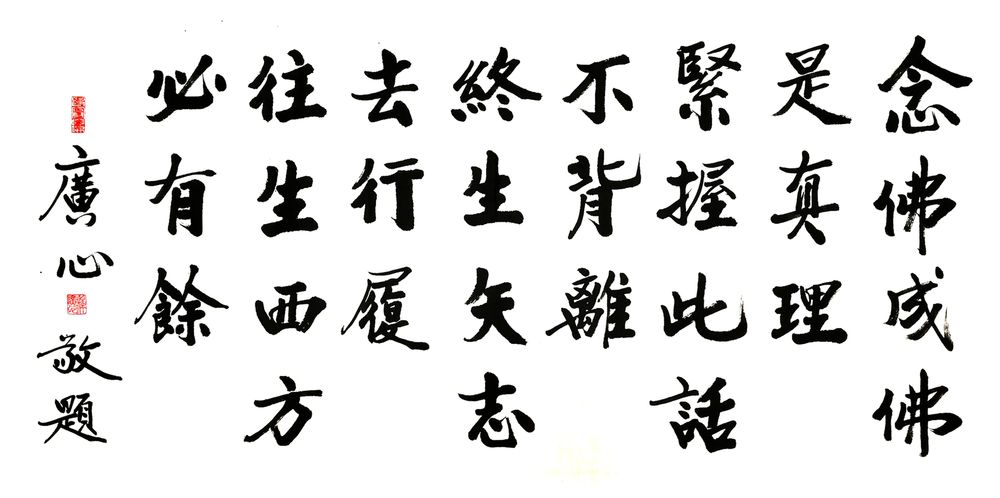 念佛成佛
是真理
緊握此話
不背離
終生矢志
去行履
往生西方
必有餘
廣心
敬題